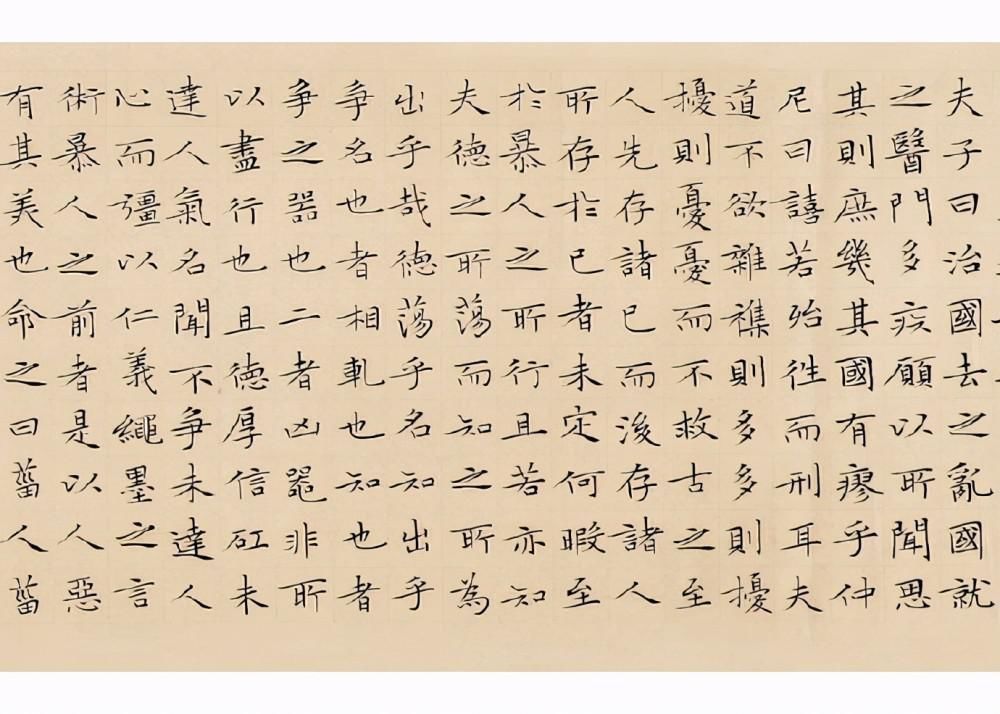 夫子曰治國去之亂國就
之醫門多疾願以所聞思
其則庶幾其國有瘳乎仲
尼曰譆若殆徃而刑耳夫
道不欲雜襍則多多則擾
擾則憂憂而不救古之至
人先存諸已而後存諸人
所存於已者未定何暇至
於暴人之所行且若亦知
夫德之所蕩而知之所為
出乎哉德蕩乎名知出乎
爭名也者相軋也知也者
爭之器也二者凶器非所
以盡行也且德厚信矼未
達人氣名聞不爭未達人
心而彊以仁義繩墨之言
術暴人之前者是以人惡
有其美也命之曰菑人菑